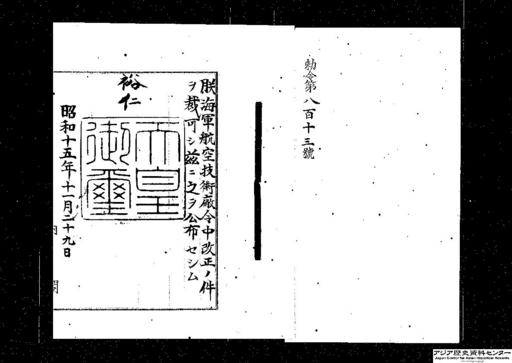 勅令第八百十三號
朕海軍航空技術廠令中改正ノ件
ヲ裁可シ茲ニ之ヲ公布セシム
裕仁
天皇
御璽
昭和十五年十一月二十九日
内閣
アジア歴史資料センター
Japan Center for Asian Historical Records